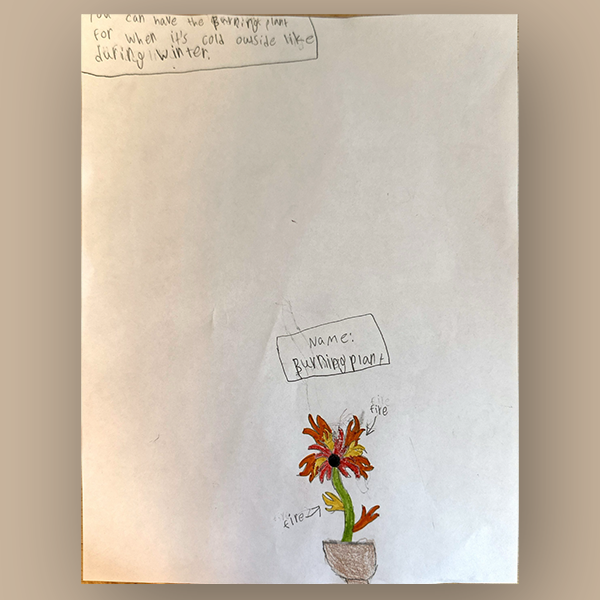 You can have the Burning plant
for when it's cold ouside like
during winter.
Name:
Burning plant
fire
fire